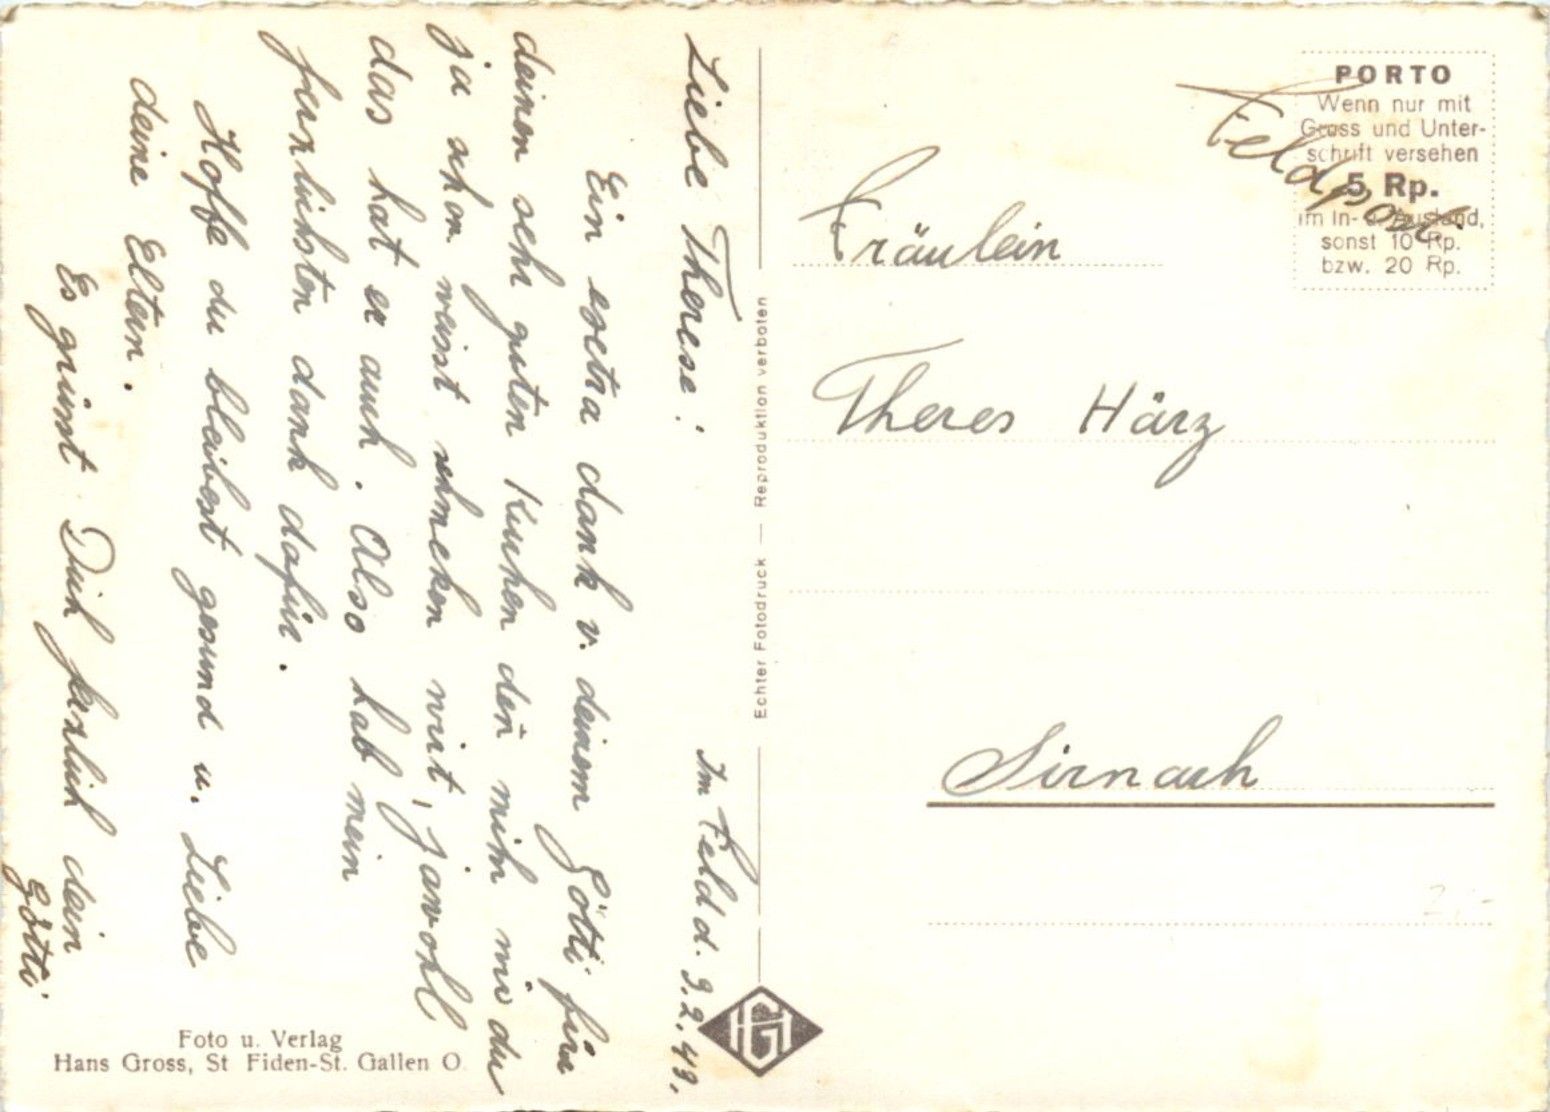 Im Feld d. 9.2.49.
Liebe Therese!
Ein extra dank v. deinem Götti für
deinen sehr guten Kuchen den mihr
ja schon weisst schmeken wirt, jawohl
das hat er auch. Also hab mein
herzlichsten dank dafür.
Hoffe du bleibest gesund u. Liebe
deine Eltern.
Es grüsst Dich herzlich dein
Götti
Foto u. Verlag
Hans Gross, St Fiden-St. Gallen O
Echter Fotodruck — Reproduktion verboten
HG
Feldpost.
PORTO
Wenn nur mit
Gruss und Unter-
schrift versehen
5 Rp.
im In- u. Ausland,
sonst 10 Rp.
bzw. 20 Rp.
Fräulein
Theres Härz
Sirnach
2,-